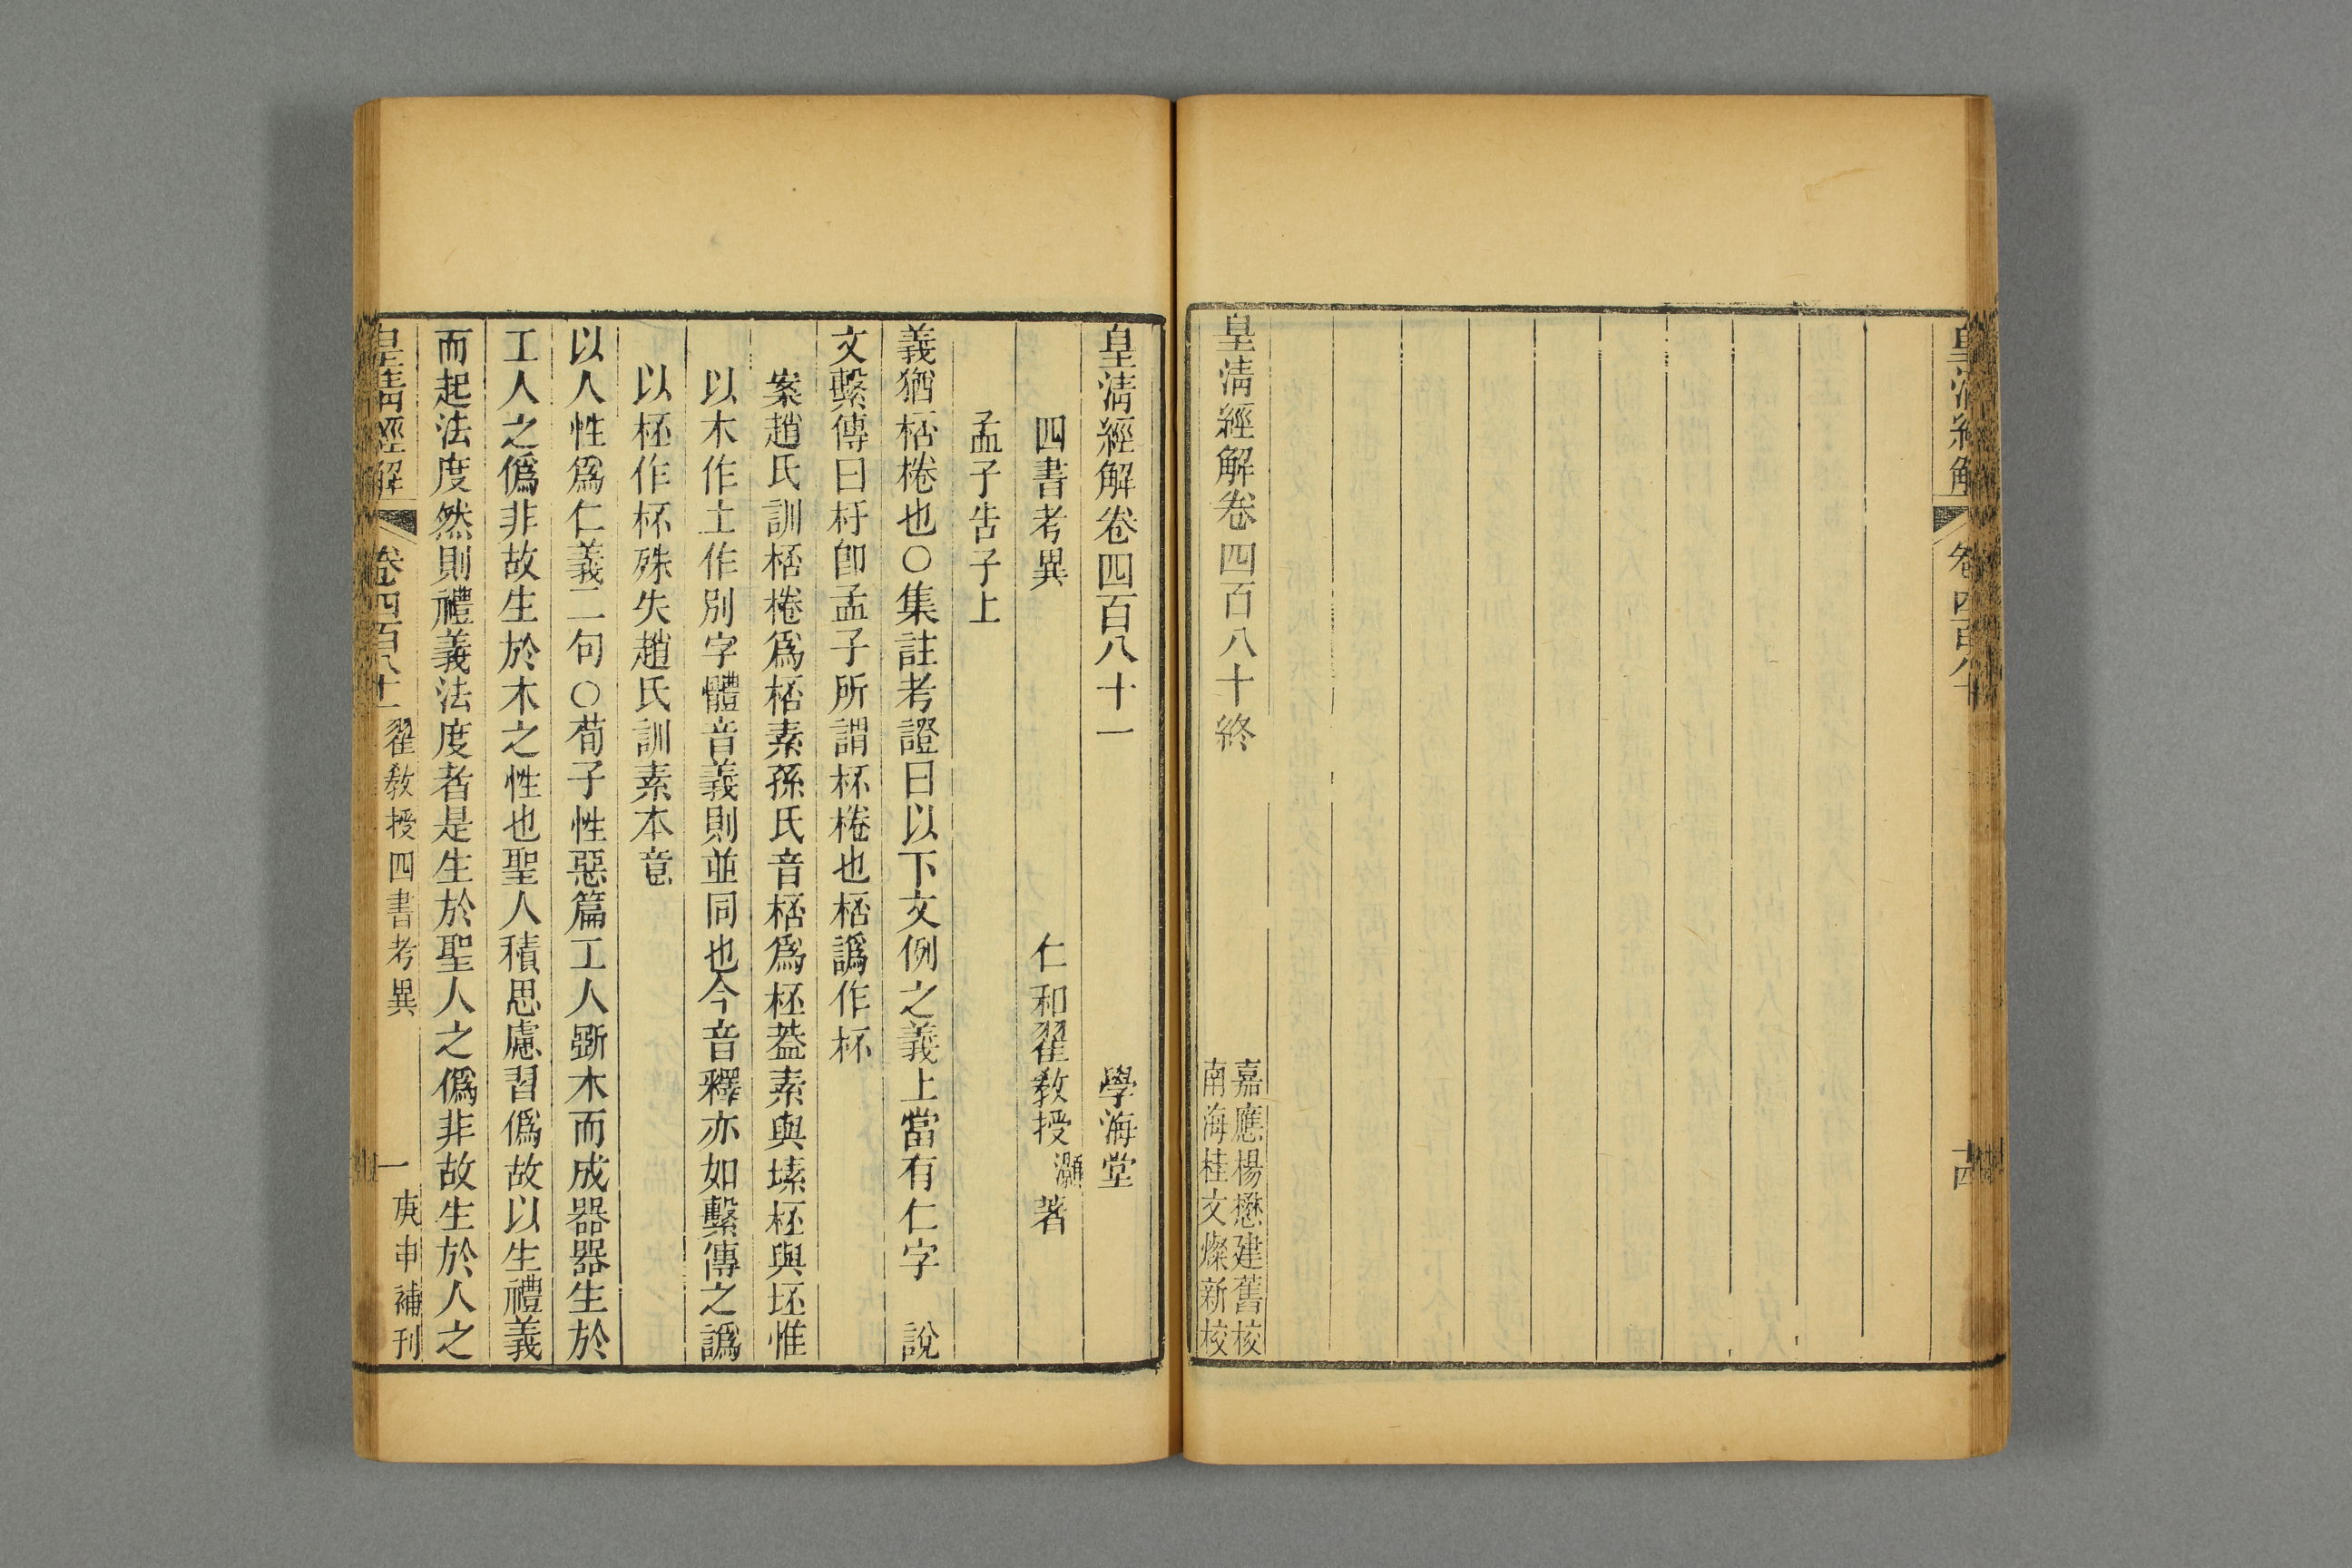 皇清經解
卷四百八十
十四
皇清經解卷四百八十終
嘉應楊懋建舊校
南海桂文燦新校
皇清經解卷四百八十一
學海堂
四書考異
仁和翟教授灝著
孟子告子上
義猶桮棬也○集註考證曰以下文例之義上當有仁字　說
文繫傳曰杅卽孟子所謂杯棬也桮譌作杯
案趙氏訓桮棬爲桮素孫氏音桮爲柸蓋素與塐柸與坯惟
以木作土作別字體音義則並同也今音釋亦如繫傳之譌
以柸作杯殊失趙氏訓素本意
以人性爲仁義二句○荀子性惡篇工人斲木而成器器生於
工人之僞非故生於木之性也聖人積思慮習僞故以生禮義
而起法度然則禮義法度者是生於聖人之僞非故生於人之
皇清經解
卷四百八十一
翟教授四書考異
一
庚申補刊